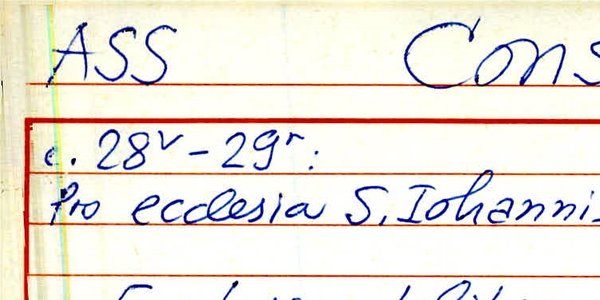 ASS Cons
c. 28v-29r:
Pro ecclesia S. Iohannis